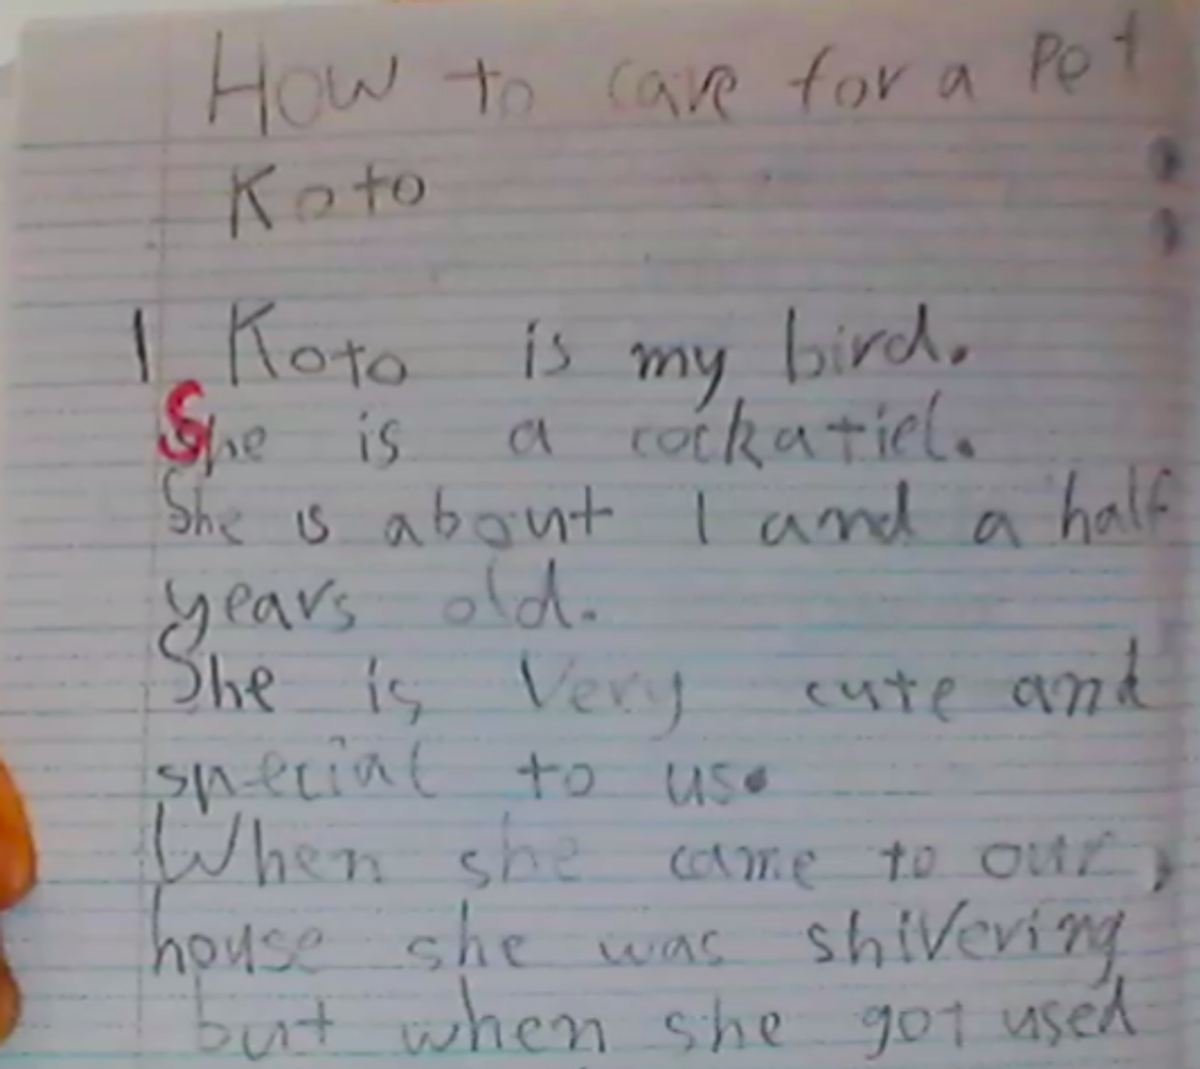 How to care for a Pet
Koto
1 Koto is my bird.
She is a cockatiel.
She is about 1 and a half
years old.
She is Very cute and
special to us.
When she came to our
house she was shivering
but when she got used